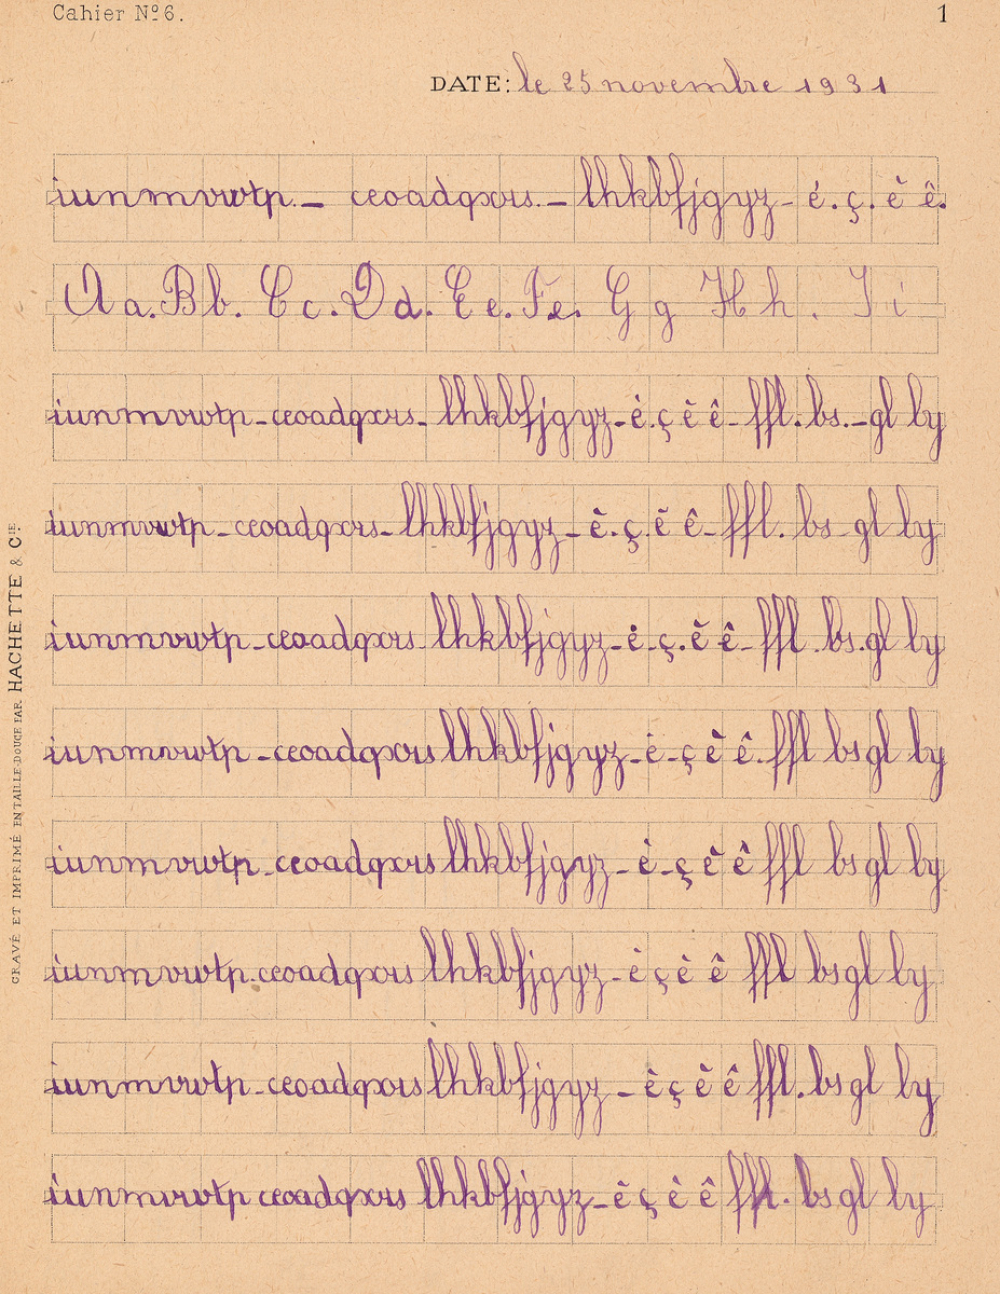 Cahier Nº 6.
1
DATE: le 25 novembre 1931
iunmvwtp. – ceoadqxrs. – lhkbfjgyz – é. ç. è ê.
A a. B b. C c. D d. E e. F e. G g H h. I i
iunmvwtp – ceoadqxrs – lhkbfjgyz – é. ç è ê – ffl. bs. – gl ly
iunmvwtp – ceoadqxrs – lhkbfjgyz – è. ç. è ê – ffl. bs – gl ly
iunmvwtp – ceoadqxrs – lhkbfjgyz – é – ç. è ê – ffl. bs. gl ly
iunmvwtp – ceoadqxrs lhkbfjgyz – é – ç è ê. ffl bs gl ly
iunmvwtp – ceoadqxrs lhkbfjgyz – é – ç è ê ffl bs gl ly
iunmvwtp – ceoadqxrs lhkbfjgyz – é ç è ê ffl bs gl ly
iunmvwtp – ceoadqxrs lhkbfjgyz – è ç è ê ffl. bs gl ly
iunmvwtp ceoadqxrs lhkbfjgyz – è ç è ê ffl. bs gl ly
GRAVÉ ET IMPRIMÉ EN TAILLE-DOUCE PAR HACHETTE & Cie.